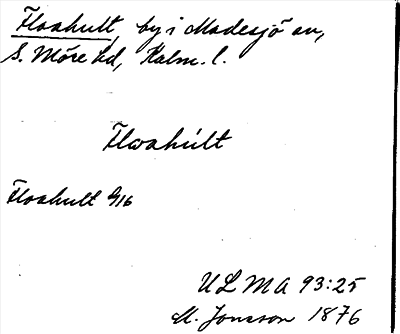 Floahult, by i Madesjö sn,
S. Möre hd, Kalm. l.
Floahult
Floahult 9/16
ULMA 93:25
M. Jonsson 1876